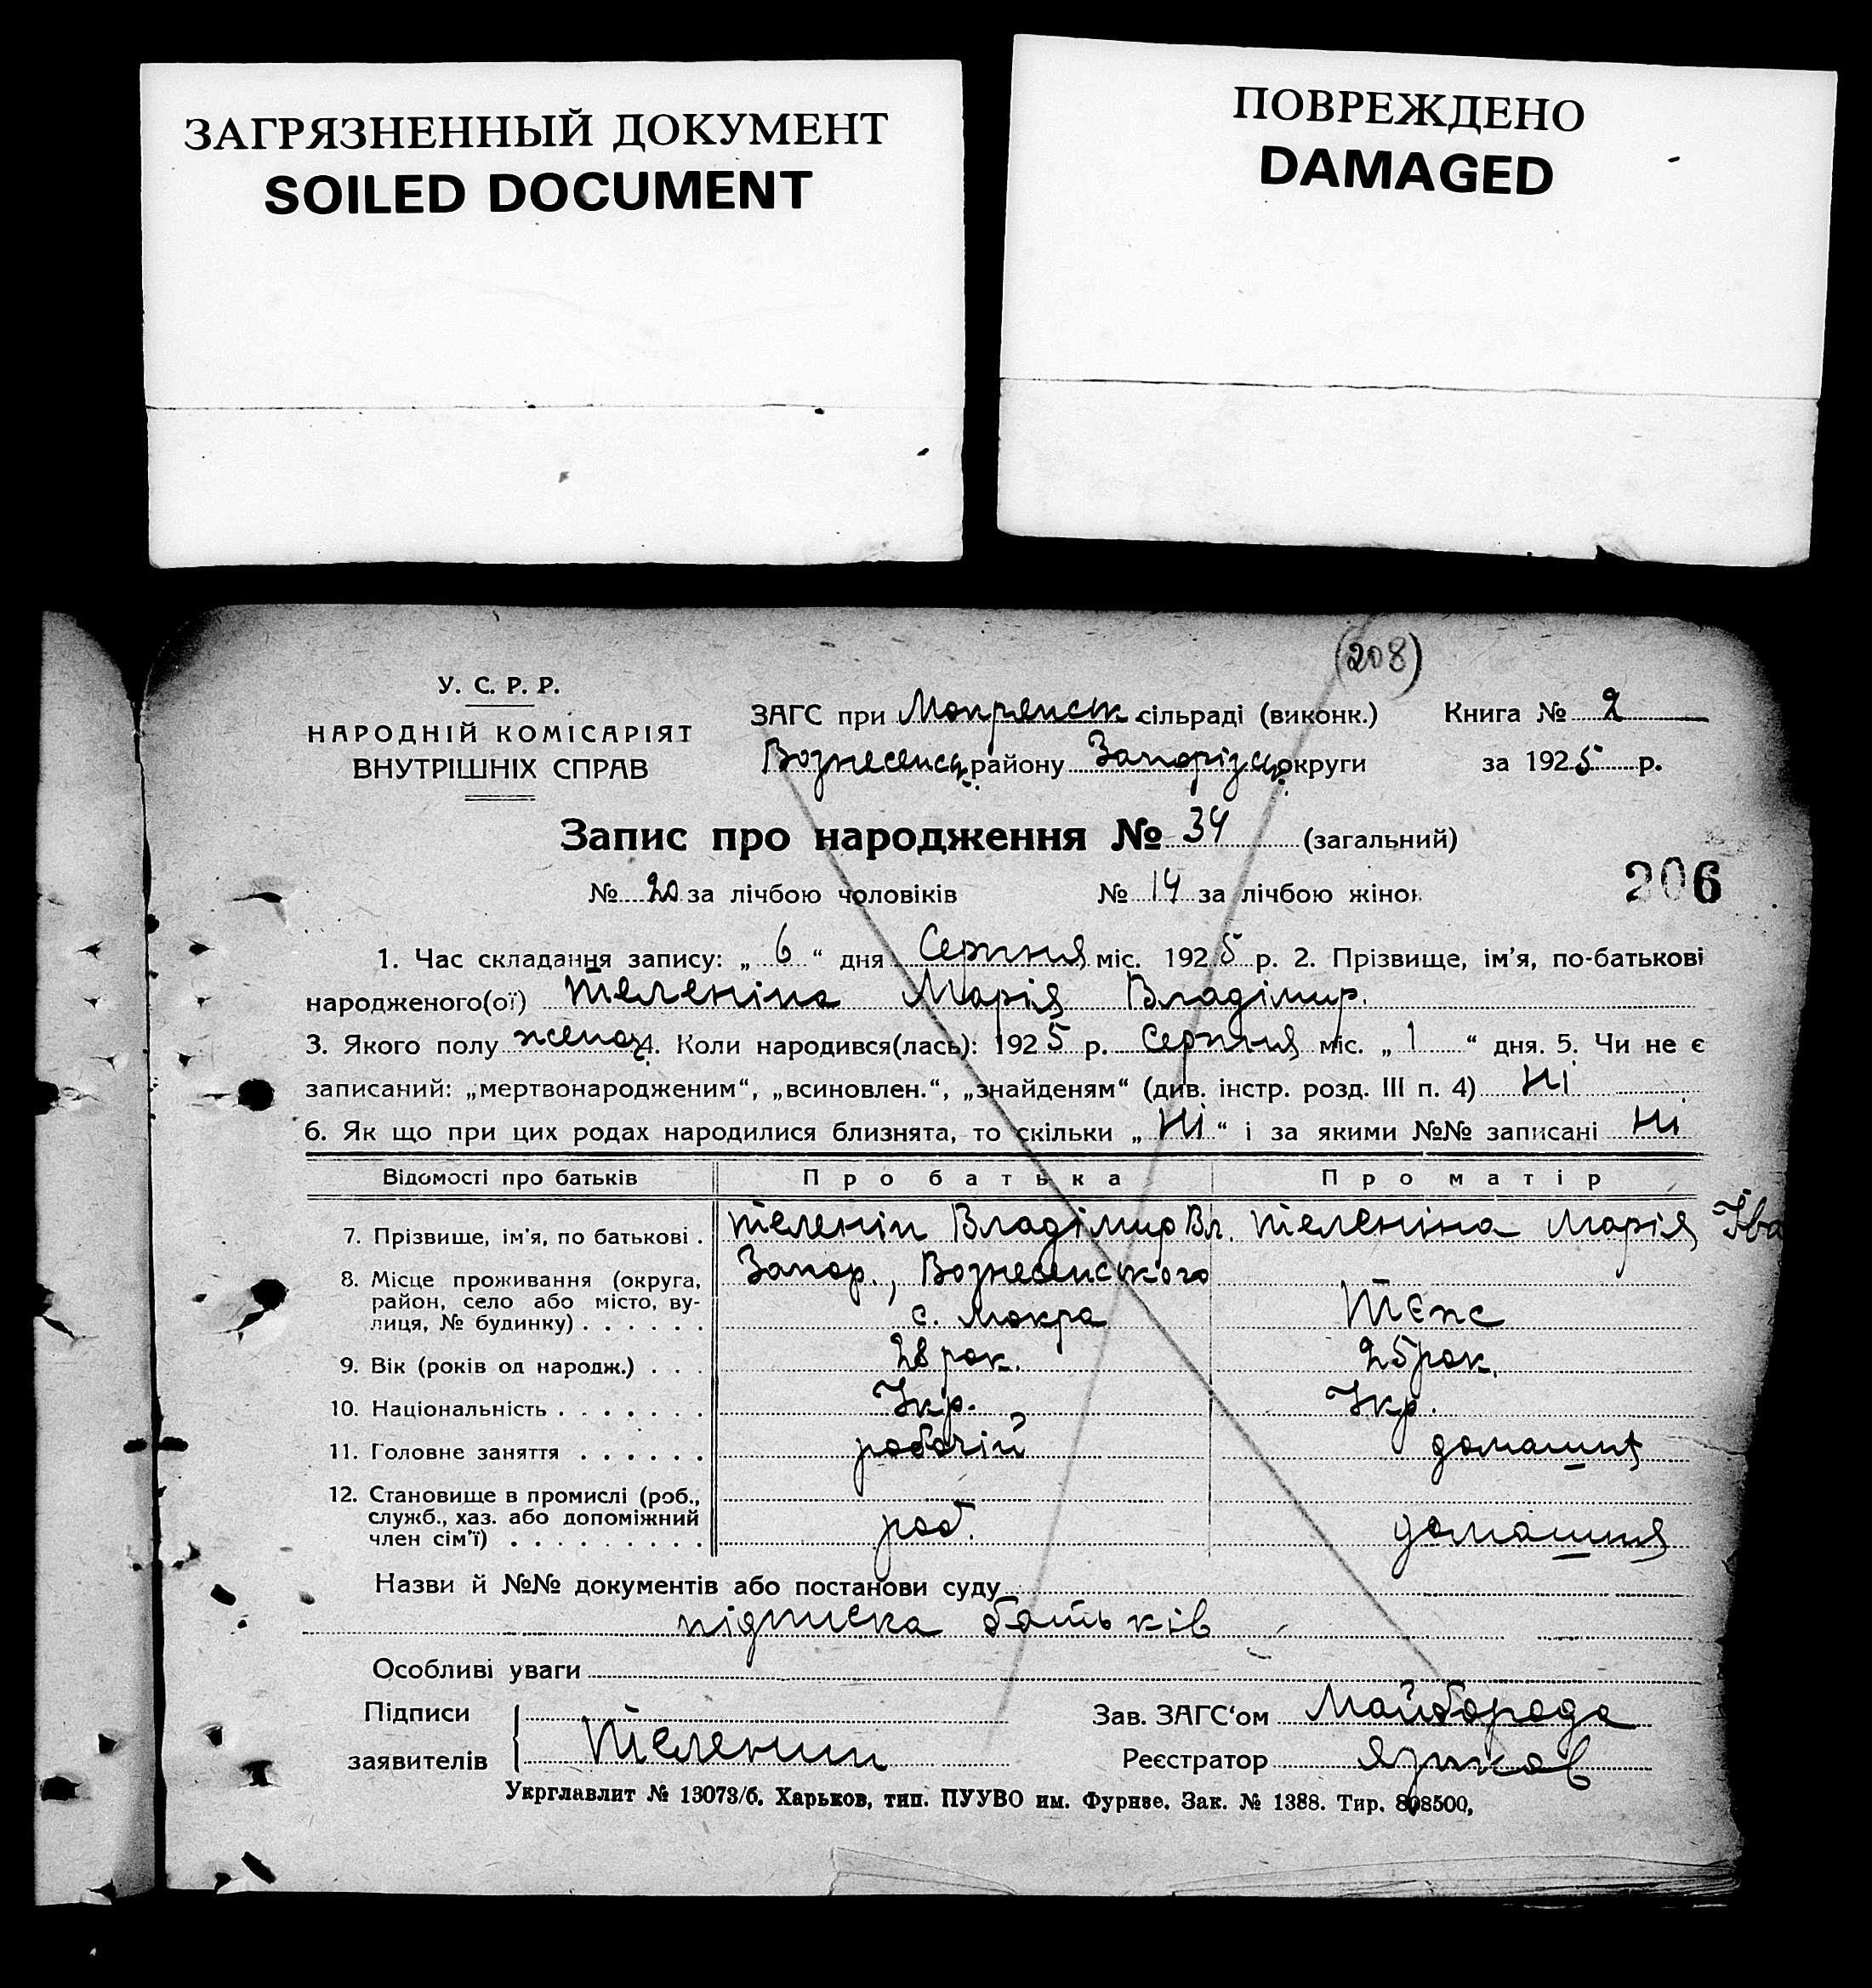 ЗАГРЯЗНЕННЫЙ ДОКУМЕНТ
SOILED DOCUMENT
ПОВРЕЖДЕНО
DAMAGED
(208)
У. С. Р. Р.
НАРОДНІЙ КОМІСАРІЯТ
ВНУТРІШНІХ СПРАВ
ЗАГС при Мокрянськ сільраді (виконк.) Книга № 2
Вознесенск. району Запорізьк. округи за 1925 р.
Запис про народження № 34 (загальний)
№ 20 за лічбою чоловіків № 14 за лічбою жінок
206
1. Час складання запису: „ 6 “ дня Серпня міс. 1925 р. 2. Прізвище, ім'я, по-батькові
народженого(ої) Теленіна Марія Владімир.
3. Якого полу женоч. 4. Коли народився(лась): 1925 р. Серпня міс. „ 1 “ дня. 5. Чи не є
записаний: „мертвонародженим“, „всиновлен.“, „знайденям“ (див. інстр. розд. III п. 4) Ні
6. Як що при цих родах народилися близнята, то скільки „ Ні “ і за якими №№ записані Ні
Відомості про батьків Про батька Про матір
7. Прізвище, ім'я, по батькові . Теленін Владімир Вл. Теленіна Марія Іва
8. Місце проживання (округа, Запор., Вознесенського
район, село або місто, ву-
лиця, № будинку) . . . . . . с. Мокра Тєпс
9. Вік (років од народж.) . . . 28 рок. 25 рок.
10. Національність . . . . . . . Укр. Укр.
11. Головне заняття . . . . . . робочій домашня
12. Становище в промислі (роб.,
служб., хаз. або допоміжний
член сім'ї) . . . . . . . . . роб. домашня
Назви й №№ документів або постанови суду
підписка батьків
Особливі уваги
Підписи Зав. ЗАГС'ом Майборода
заявителів Теленин Реєстратор
Укрглавлит № 13073/б. Харьков, тип. ПУУВО им. Фрунзе. Зак. № 1388. Тир. 808500,